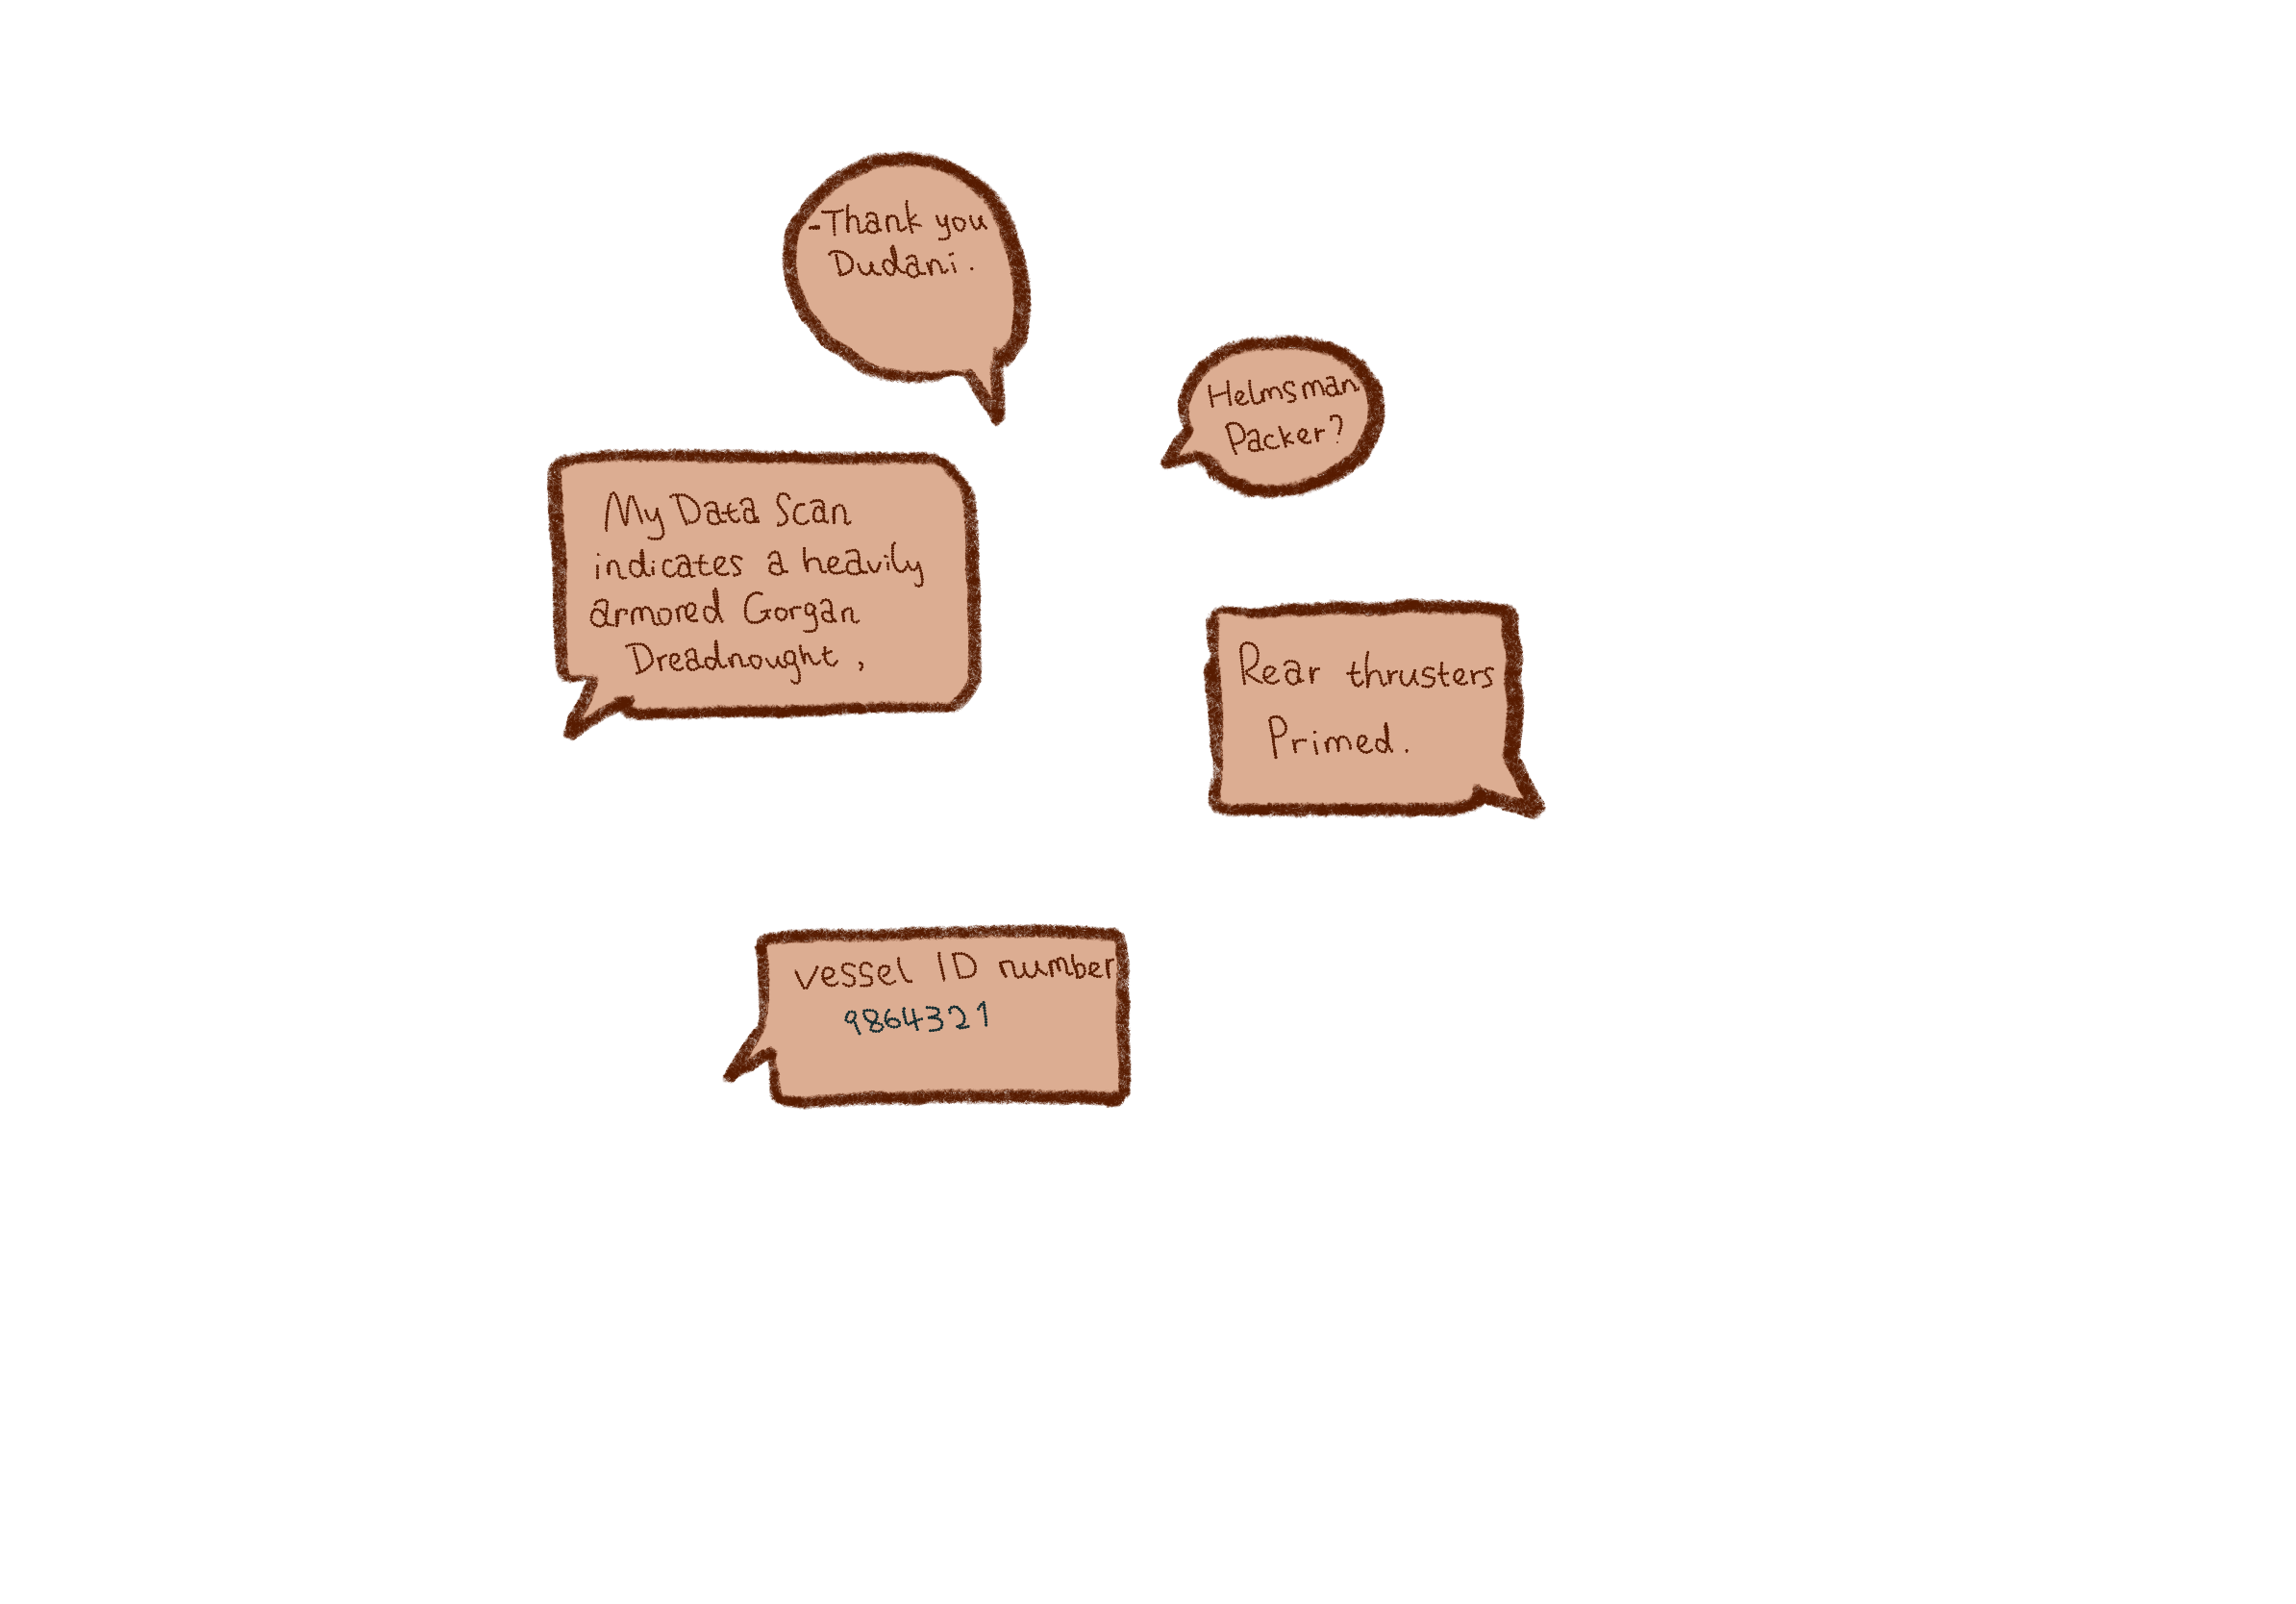 -Thank you
Dudani.
Helmsman
Packer?
My Data Scan
indicates a heavily
armored Gorgan
Dreadnought,
Rear thrusters
Primed.
vessel ID number
9864321